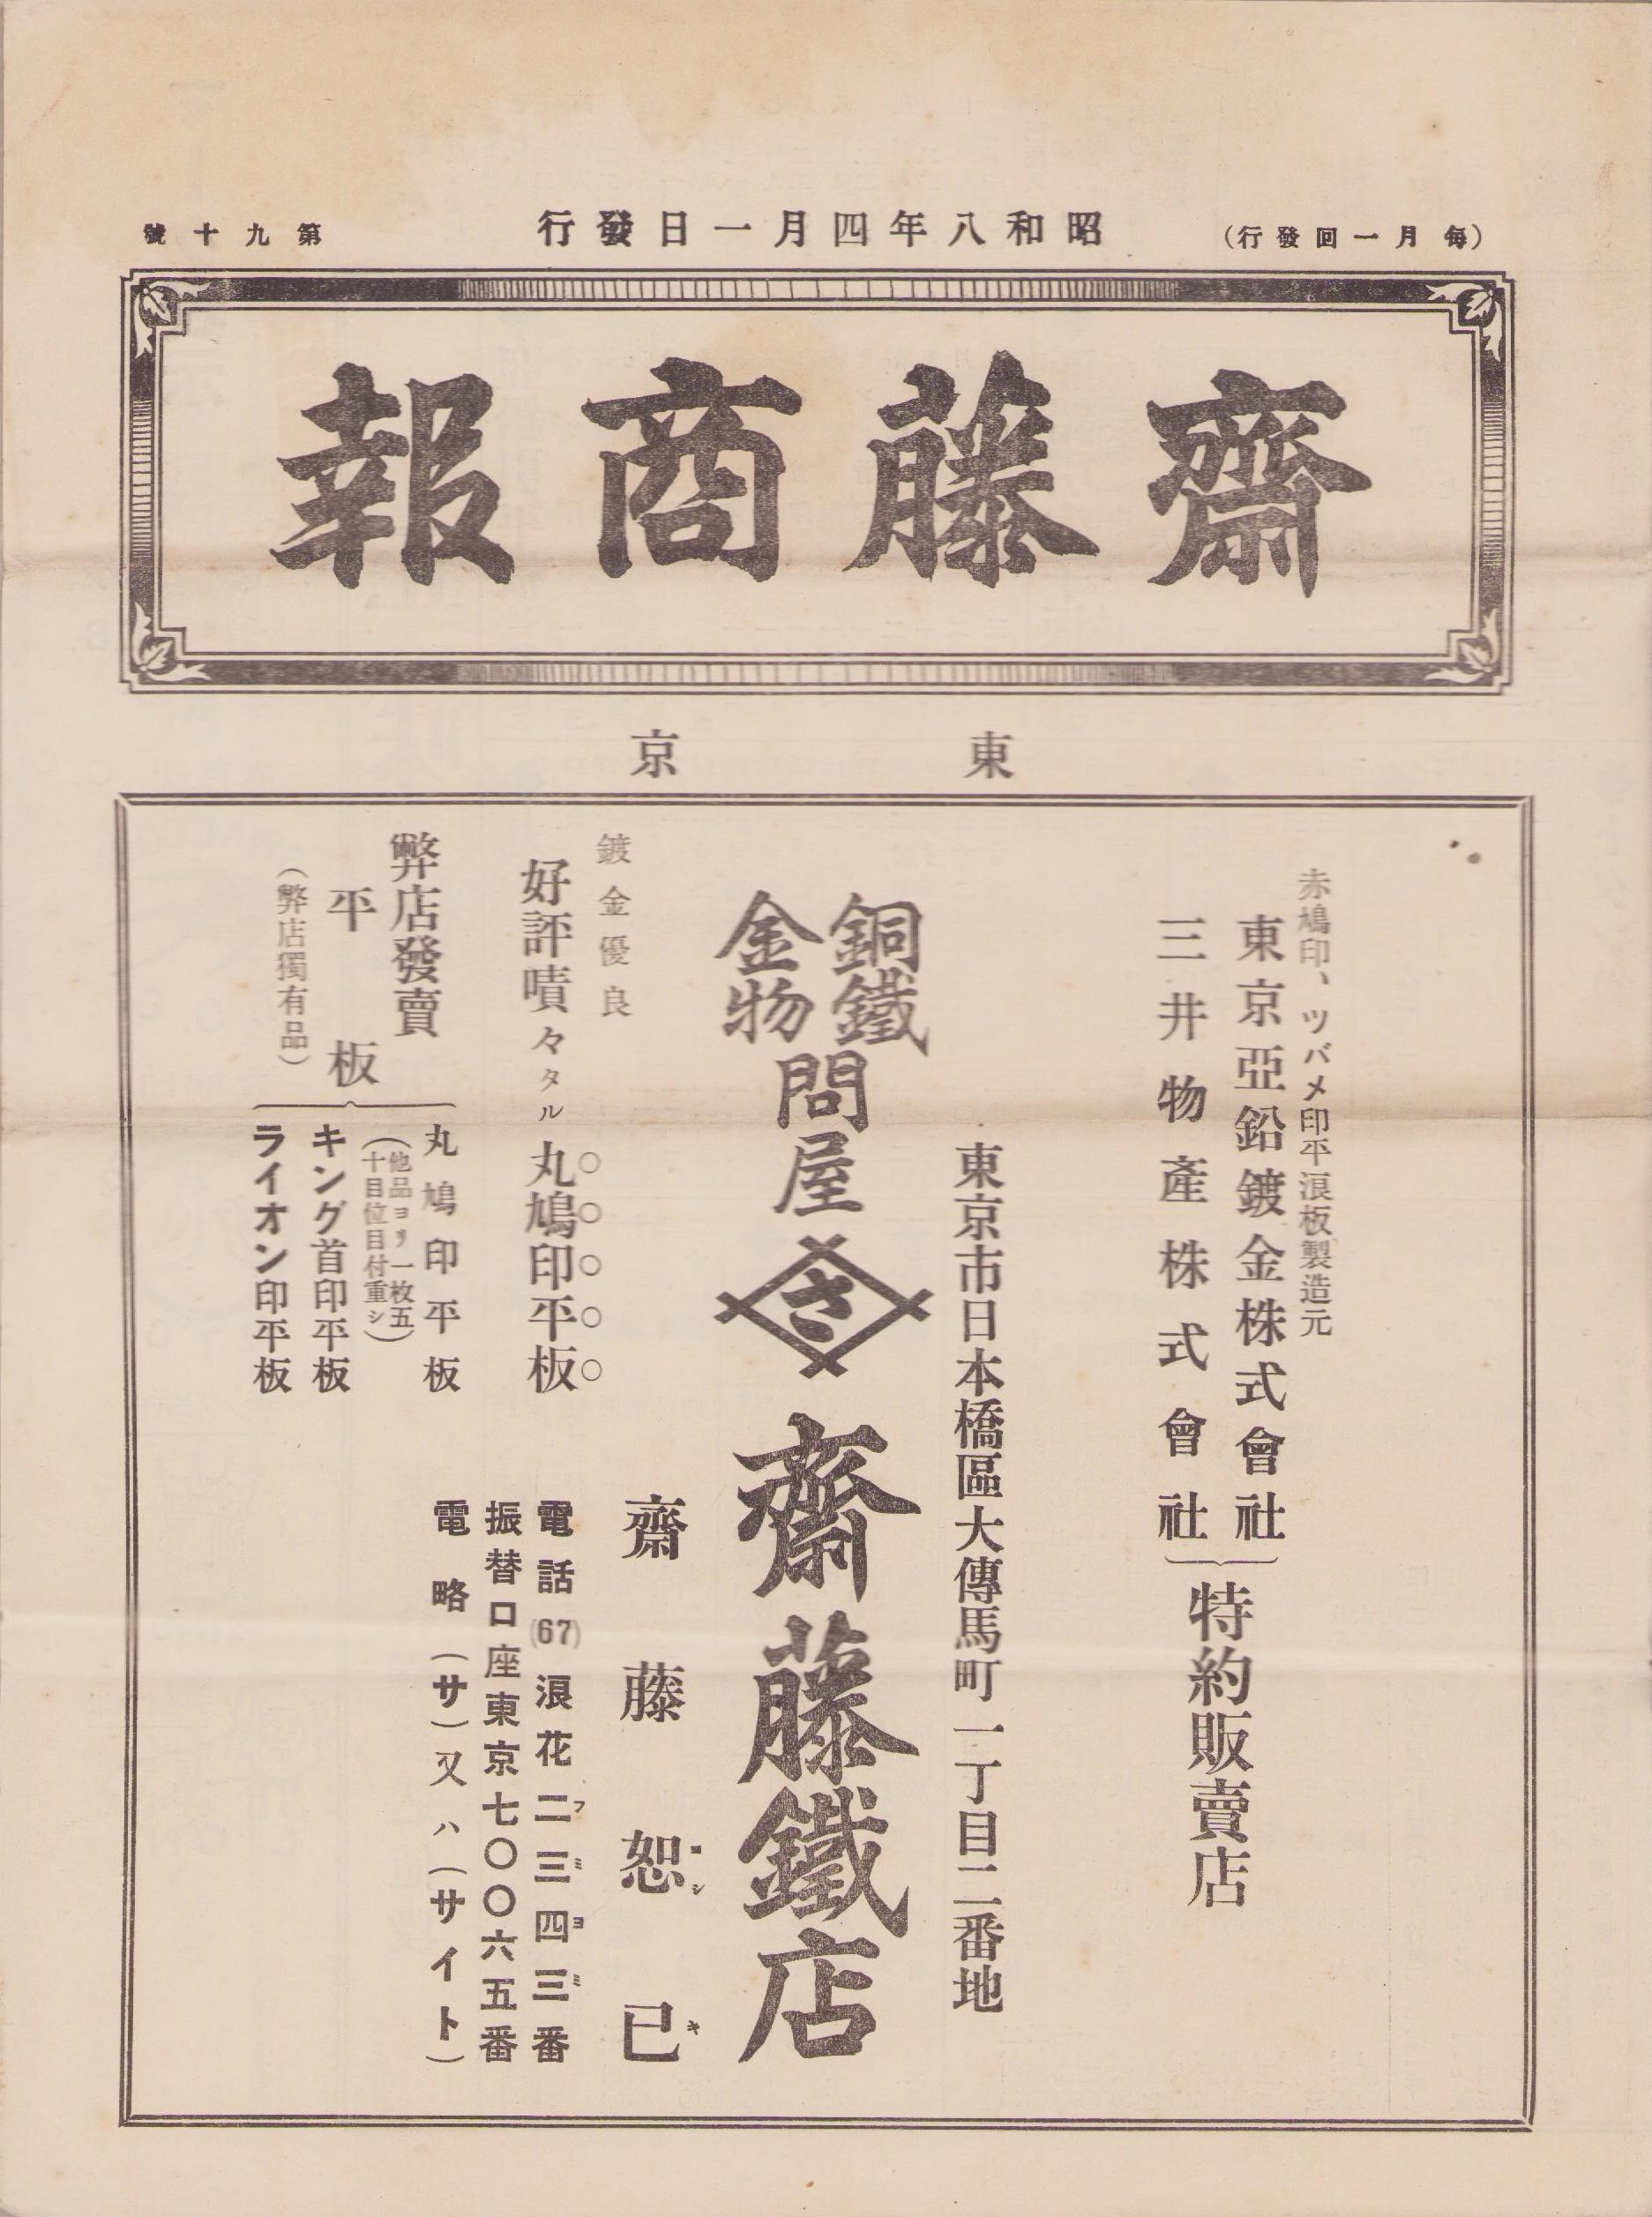 （毎月一回發行）
昭和八年四月一日發行
第九十號
齋藤商報
東京
赤鳩印、ツバメ印平浪板製造元
東京亞鉛鍍金株式會社
三井物產株式會社
特約販賣店
東京市日本橋區大傳馬町一丁目二番地
銅鐵
金物
問屋
さ
齋藤鐵店
齋藤恕已
シ
キ
鍍金優良
好評嘖々タル丸鳩印平板
○○○○○
電話(67)浪花二三四三番
フミヨミ
振替口座東京七〇〇六五番
電略（サ）又ハ（サイト）
弊店發賣
平板
（弊店獨有品）
丸鳩印平板
（他品ヨリ一枚五
十目位目付重シ）
キング首印平板
ライオン印平板